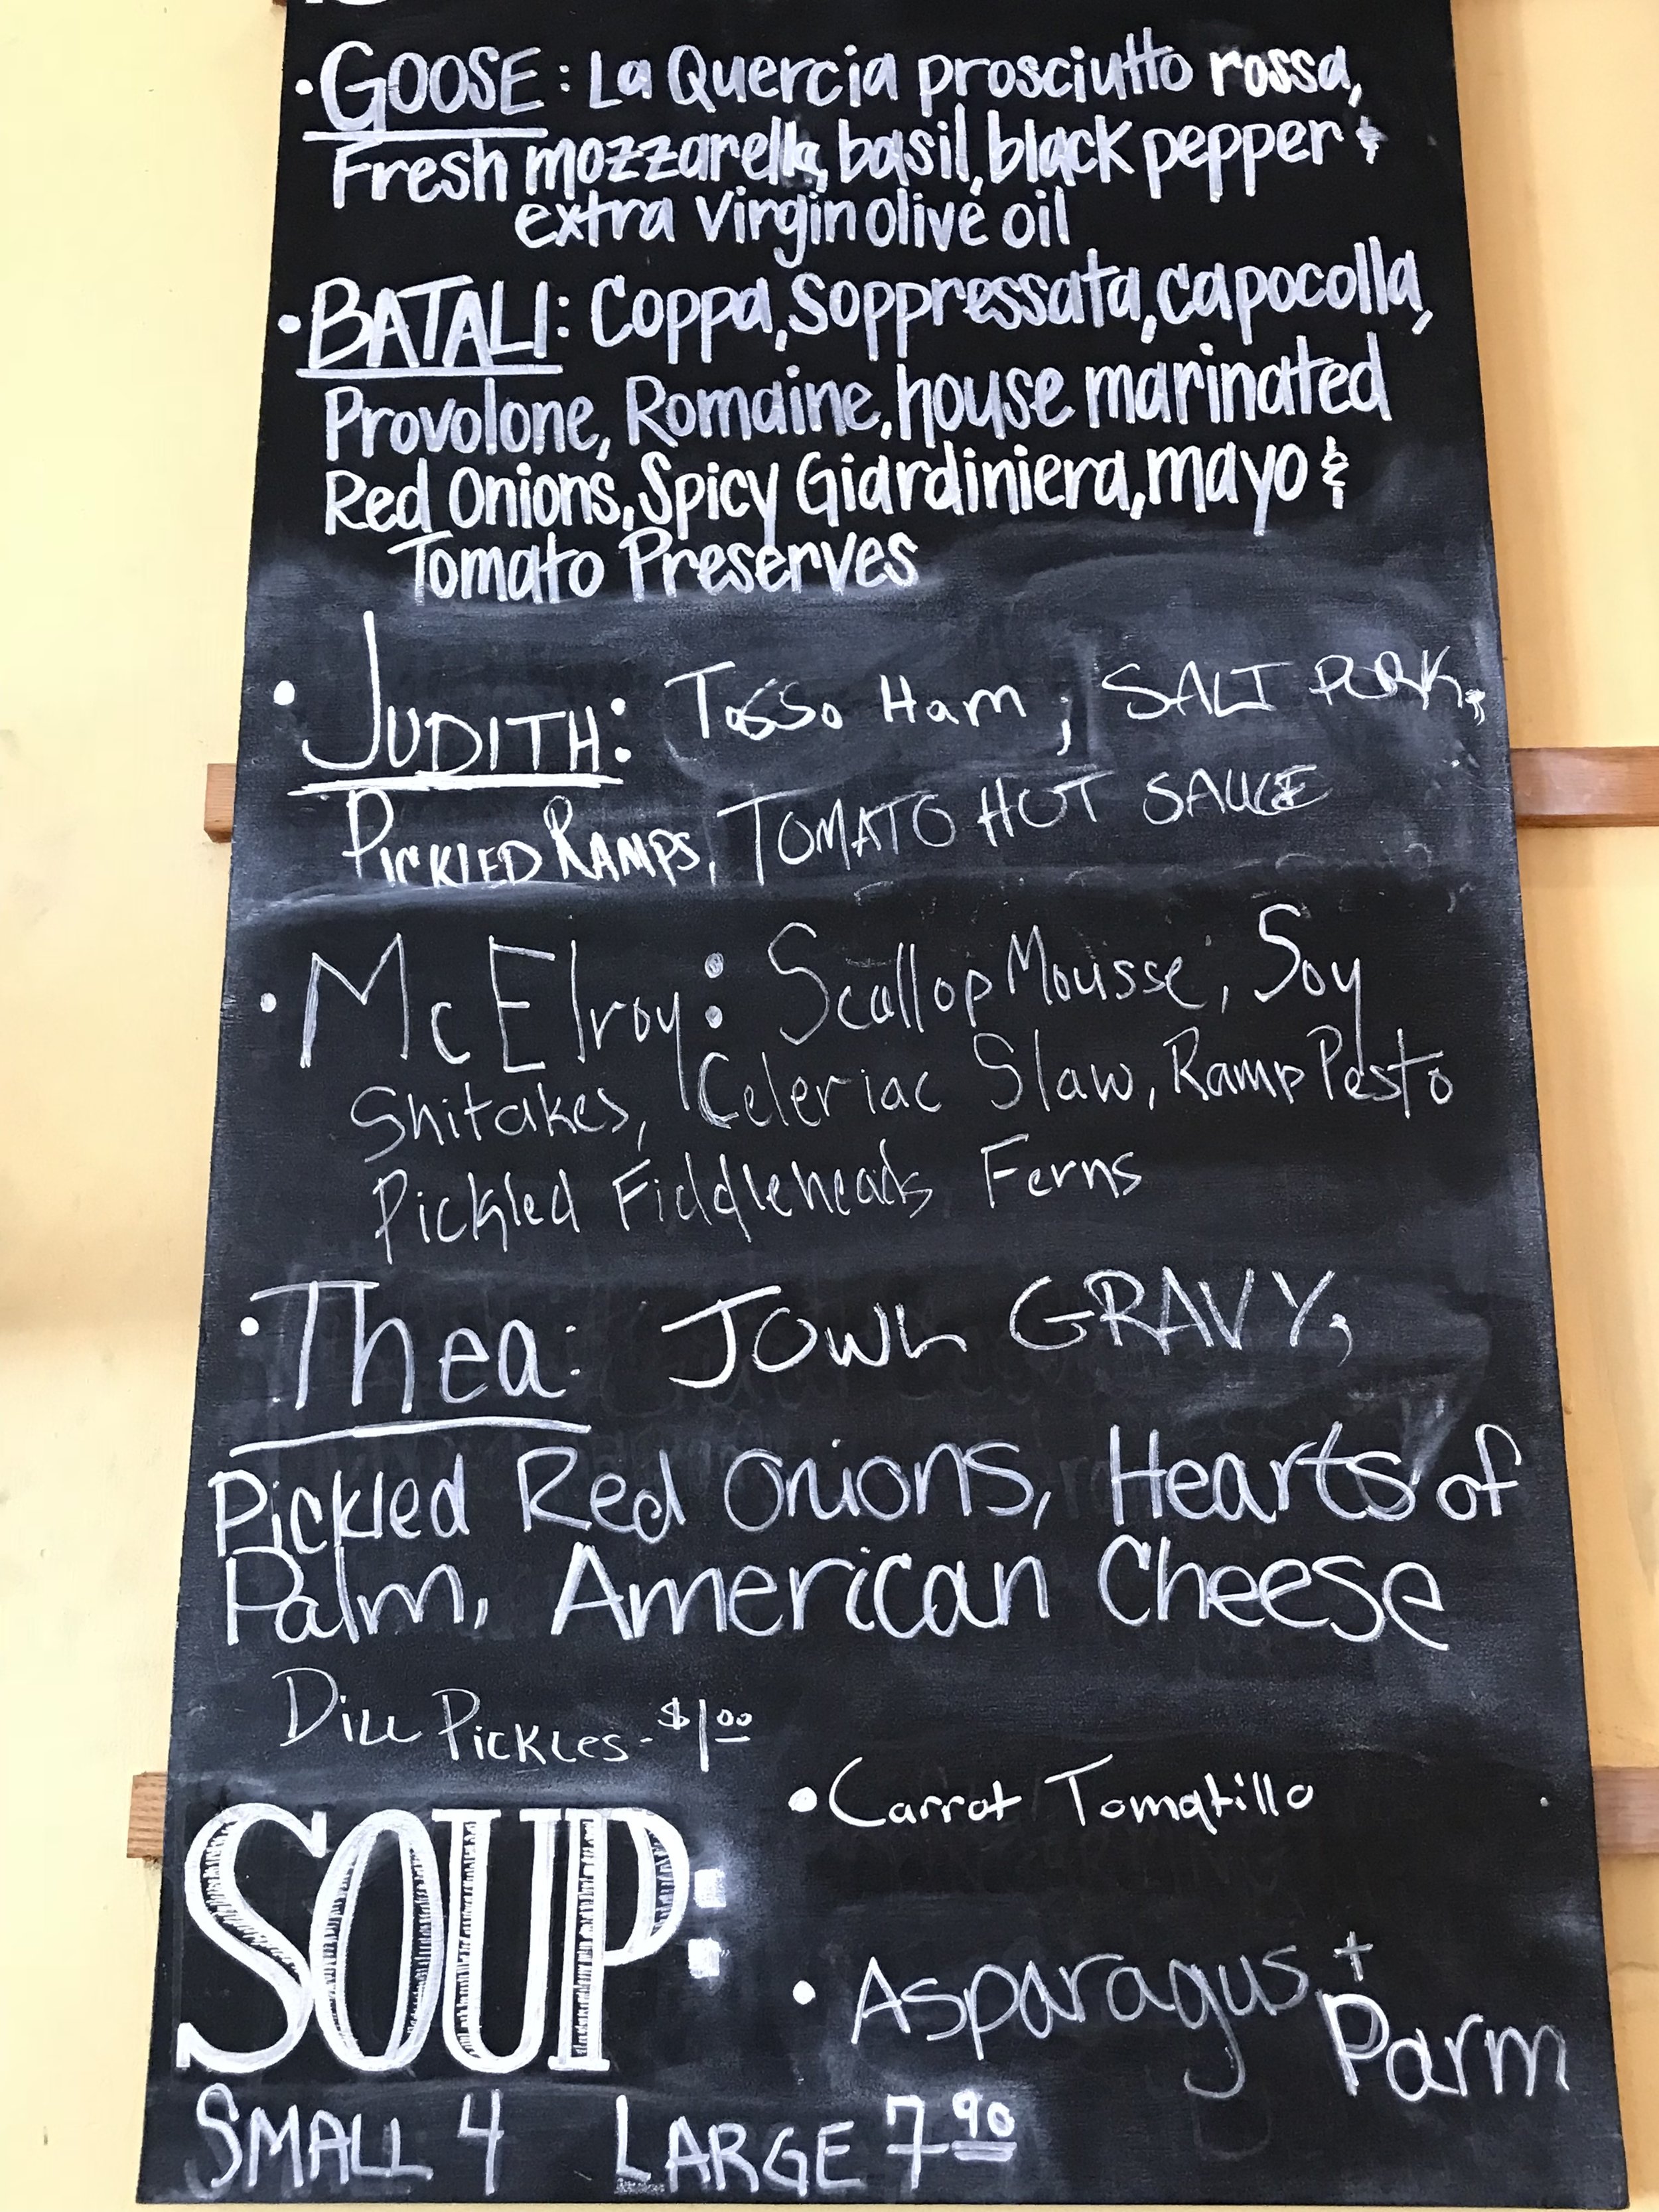 • GOOSE: La Quercia prosciutto rossa,
Fresh mozzarella, basil, black pepper &
extra virgin olive oil
• BATALI: Coppa, Soppressata, capocolla,
Provolone, Romaine, house marinated
Red Onions, Spicy Giardiniera, mayo &
Tomato Preserves
• JUDITH: Tasso Ham, SALT PORK,
PICKLED RAMPS, TOMATO HOT SAUCE
• McElroy: Scallop Mousse, Soy
Shitakes, Celeriac Slaw, Ramp Pesto
Pickled Fiddleheads Ferns
• Thea: JOWL GRAVY,
Pickled Red Onions, Hearts of
Palm, American Cheese
DILL PICKLES - $1.00
SOUP:
• Carrot Tomatillo
• Asparagus +
Parm
SMALL 4 LARGE 7.90